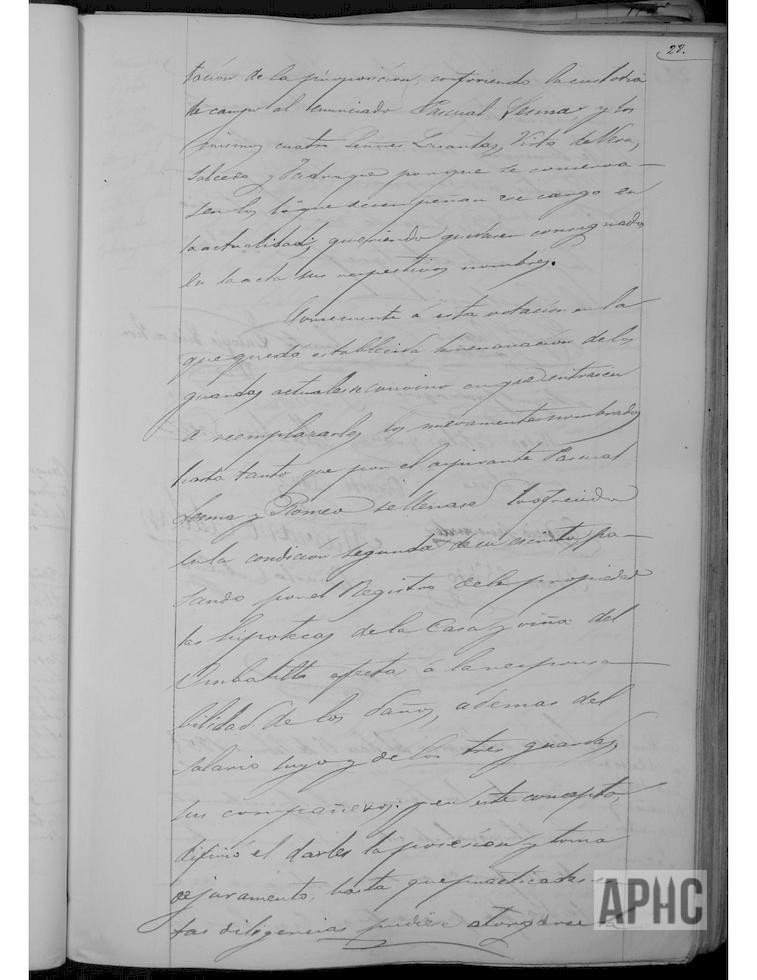 28.
tación de la proposición, confiriendo la custodia
de campo al enunciado Pascual Lesma, y los
mismos cuatro Señores Visto de Vera,
Salcedo y porque se conserva-
sen los que desempeñan ese cargo en
la actualidad, queriendo quedasen consignados
en la acta sus respectivos nombres.
Consecuente á esta votación en la
que queda establecida la renovación de los
guardas actuales se convino en que entrasen
a reemplazarles los nuevamente nombrados
hasta tanto que por el aspirante Pascual
Lesma y Romeo se llenase lo ofrecido
en la condicion segunda de su escrito, pa-
sando por el Registro de la propiedad
las hipotecas de la Casa y viña del
afectas á la responsa-
bilidad de los daños, ademas del
salario suyo y de los tres guardas
sus compañeros: y en este concepto,
difirió el darles la posesion y toma
de juramento, hasta que practicadas es-
tas diligencias pudiese otorgarse la
APHC